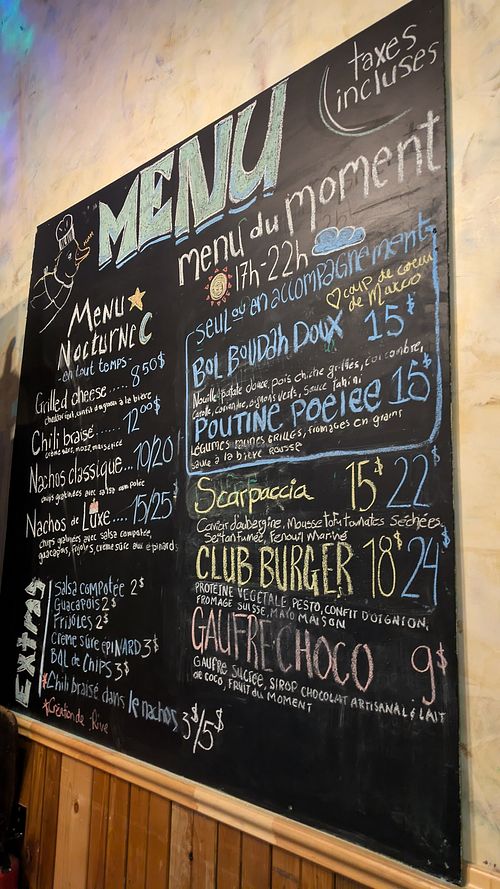 taxes
incluses
MENU
menu du moment
17h-22h
Menu
Nocturne
-en tout temps-
Grilled cheese ..... 8 50$
Chili braisé ..... 12 00$
crème sure, maïs,
Nachos classique... 10/20$
chips gratinées avec salsa compotée
Nachos de Luxe.... 15/25$
chips gratinées avec salsa compotée,
guacapois, frijoles, crème sure aux épinards
Extras
Salsa compotée 2$
Guacapois 2$
Frijoles 2$
Creme sûre épinard 3$
Bol de chips 3$
*Chili braisé dans le nachos 3$/5$
*Création de Rive
seul ou en accompagnement
♡ coup de coeur
de Marco
Bol Boudah Doux 15$
Nouille patate douce, pois chiche grillés, concombre,
carotte, coriandre, oignons verts, sauce Tahini
Poutine Poelée 15$
Légumes racines grillés, fromages en grains
sauce à la bière rousse
Scarpaccia 15$ 22$
Caviar d'aubergine, Mousse tofu, tomates séchées,
Seitan fumée, Fenouil Mariné
CLUB BURGER 18$ 24$
PROTEINE VEGETALE, PESTO, CONFIT D'OIGNON,
FROMAGE SUISSE, MAYO MAISON
GAUFRE CHOCO 9$
GAUFRE SUCRÉE, SIROP CHOCOLAT ARTISANAL & LAIT
DE COCO, FRUIT DU MOMENT